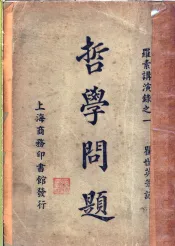 羅素講演錄之一
瞿世英筆記
哲學問題
上海商務印書館發行